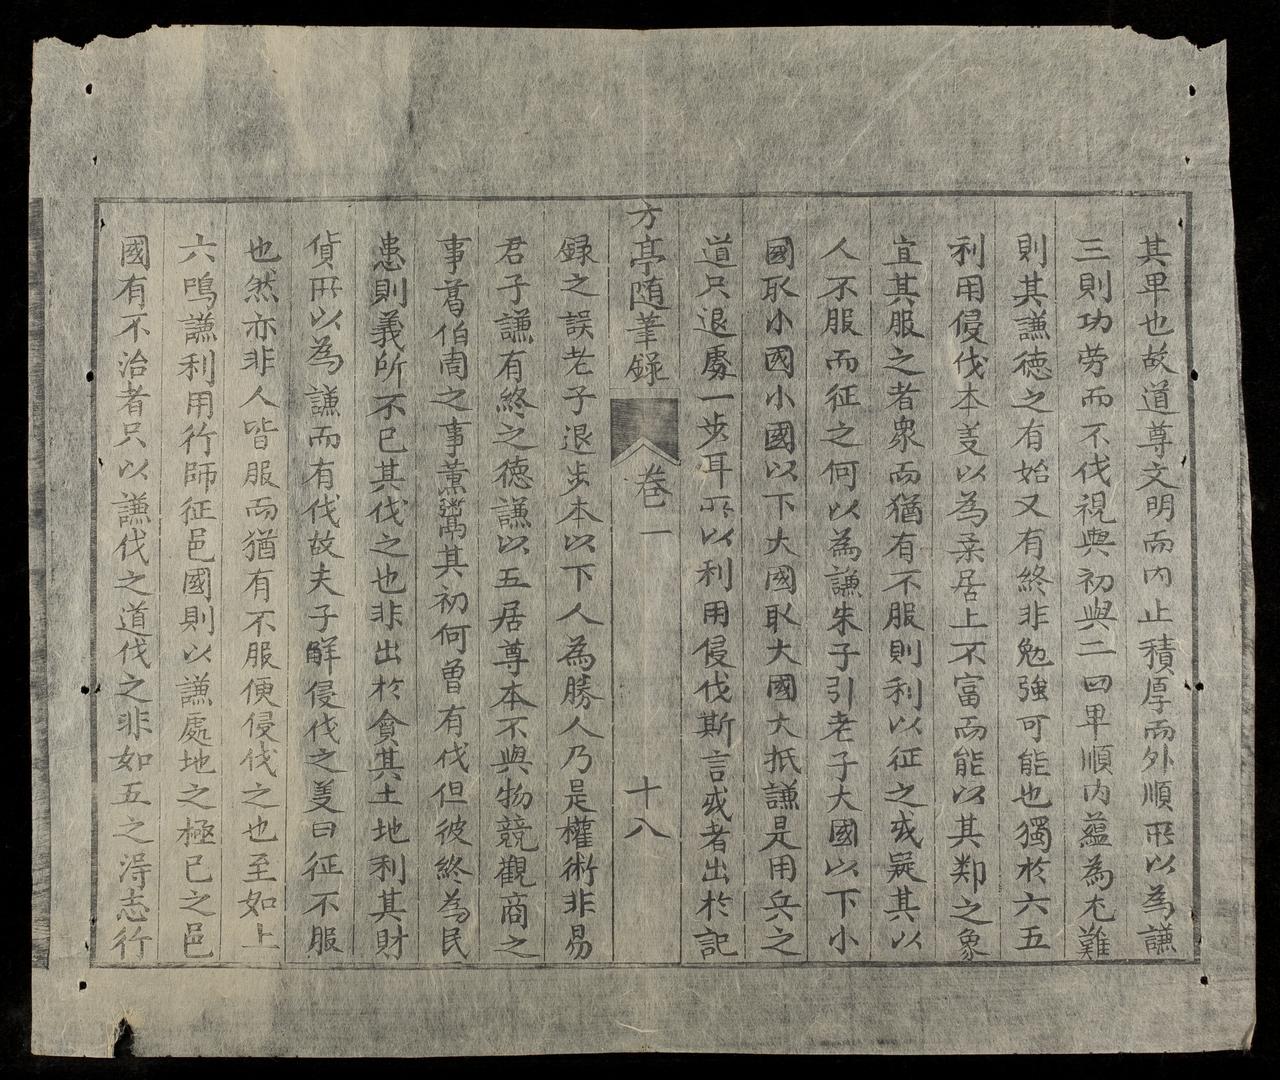 其卑也故道尊文明而内止積厚而外順所以為謙
三則功劳而不伐視與初與二四卑順内蘊為尤難
則其謙徳之有始又有終非勉強可能也獨於六五
利用侵伐本義以為柔居上不富而能以其鄰之象
宜其服之者衆而猶有不服則利以征之或疑其以
人不服而征之何以為謙朱子引老子大國以下小
國取小國小國以下大國取大國大抵謙是用兵之
道只退處一步耳所以利用侵伐斯言或者出於記
方亭随筆録 卷一 十八
録之誤老子退步本以下人為勝人乃是權術非易
君子謙有終之徳謙以五居尊本不與物競觀商之
事葛伯周之事薰鬻其初何曽有伐但彼終為民
患則義所不已其伐之也非出於貪其土地利其財
貨所以為謙而有伐故夫子觧侵伐之義曰征不服
也然亦非人皆服而猶有不服便侵伐之也至如上
六鳴謙利用行師征邑國則以謙處地之極已之邑
國有不治者只以謙伐之道伐之非如五之淂志行